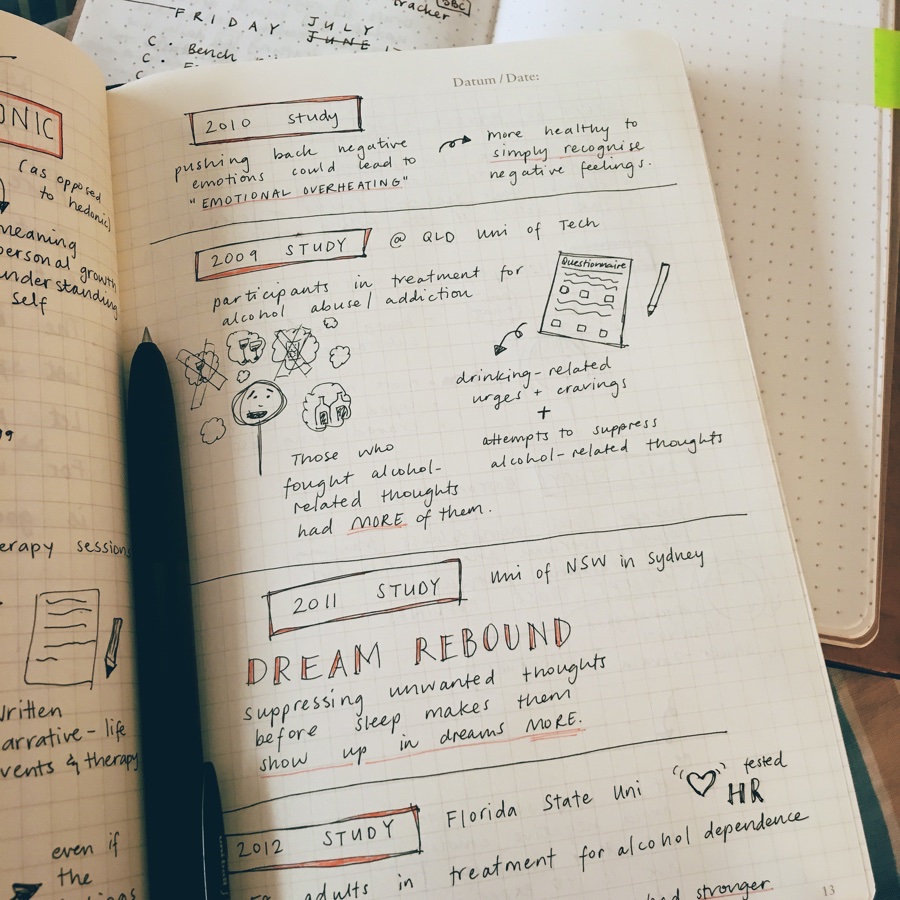 tracker
FRIDAY JULY
JUNE
C · Bench
C ·
ONIC
(as opposed
to hedonic)
meaning
personal growth
understanding
self
erapy sessions
Written
arrative - life
vents & therapy
even if
the
Datum / Date:
2010 study
pushing back negative
emotions could lead to
"EMOTIONAL OVERHEATING"
more healthy to
simply recognise
negative feelings.
2009 STUDY @ QLD uni of Tech
participants in treatment for
alcohol abuse / addiction
Questionnaire
drinking-related
urges + cravings
+
attempts to suppress
alcohol-related thoughts
Those who
fought alcohol-
related thoughts
had MORE of them.
2011 STUDY uni of NSW in Sydney
DREAM REBOUND
suppressing unwanted thoughts
before sleep makes them
show up in dreams MORE.
2012 STUDY Florida State Uni tested
HR
adults in treatment for alcohol dependence
had stronger
13